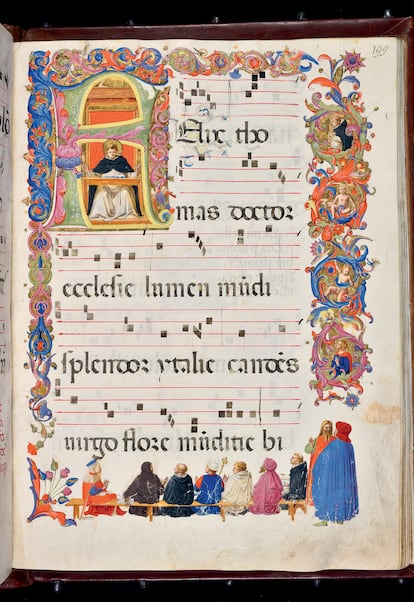 199
FElix tho
mas doctor
ecclesie lumen mūdi
splendor ytalie candēs
uirgo flore mūditie bi